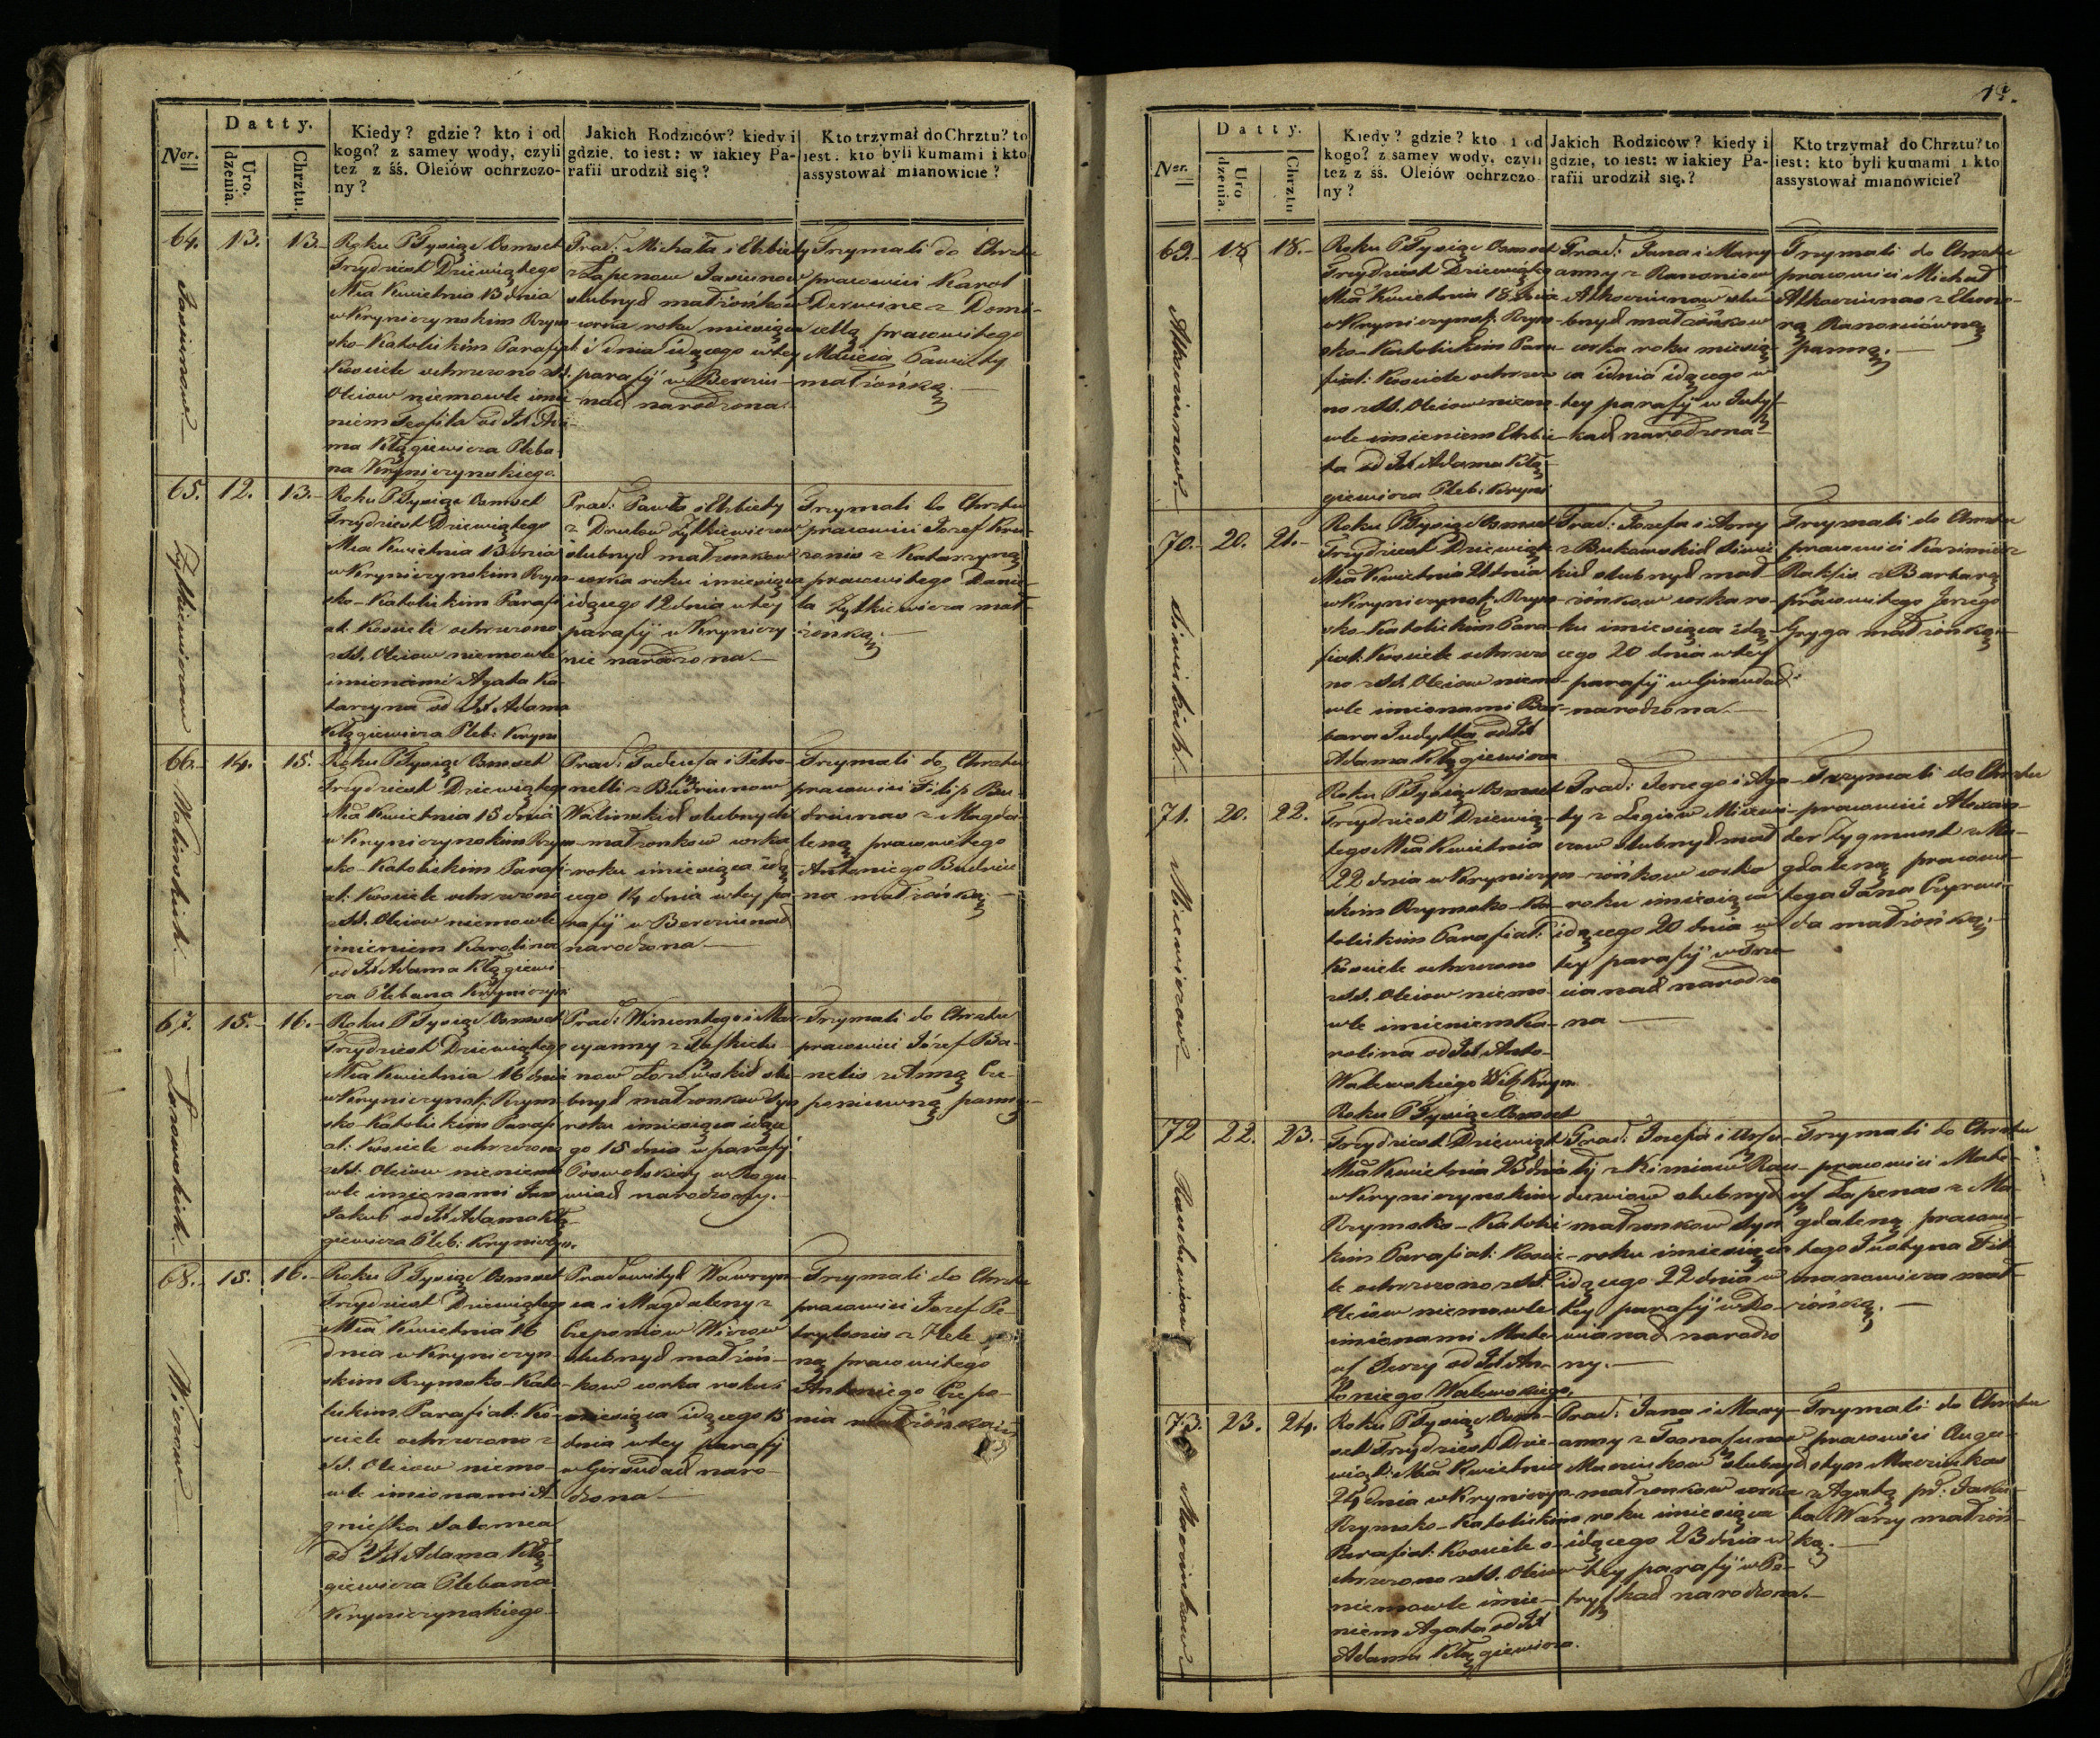 Ner.
Datty.
Uro,
dzenia.
Chrztu.
Kiedy? gdzie? kto i od
kogo? z samey wody, czyli
też z śś. Oleiów ochrzczo-
ny?
Jakich Rodziców? kiedy i
gdzie, to iest: w iakiey Pa-
rafii urodził się?
Kto trzymał do Chrztu? to
iest: kto byli kumami i kto
assystował mianowicie?
64.
13.
13.
Roku P Tysiąc Osmset
Trzydziest Dziewiątego
Mca Kwietnia 13 dnia
w Kryniczynskim Rzym-
sko-Katolickim Parafial
Kościele ochrzczono z SS.
Oleiow niemowle imie-
niem Teofila od JX Ada-
ma Kłągiewicza Pleba-
na Kryniczynskiego.
Prac: Michała i Elżbiety
z Łapenow Jasiunow
slubnych małżonkow
corka roku miesiąca
i dnia idącego w tey
parafij w Berciu-
nach narodzona.
Trzymali do Chrztu
pracowici Karol
Derwinc z Domi-
cellą pracowitego
Macieia Gawilty
małżonką.
Jasiunow
65.
12.
13.
Roku P Tysiąc Osmset
Trzydziest Dziewiątego
Mca Kwietnia 13 dnia
w Kryniczynskim Rzym-
sko-Katolickim Parafi
al: Kościele ochrzczono
z SS. Oleiow niemowle
imionami Agata Ka-
tarzyna od JX Adama
Kłągiewicza Pleb: Kryn
Prac: Pawła i Elżbiety
z Drutow Żytkiewiczow
slubnych małżonkow
corka roku i miesiąca
idącego 12 dnia w tey
parafij w Kryniczy-
nie narodzona.
Trzymali do Chrztu
pracowici Jozef Kru-
zonis z Katarzyną
pracowitego Danie-
la Żytkiewicza mał-
żonką.
Żytkiewiczow
66.
14.
15.
Roku P Tysiąc Osmset
Trzydziest Dziewiątego
Mca Kwietnia 15 dnia
w Kryniczynskim Rzym-
sko-Katolickim Parafi-
al: Kościele ochrzczono
z SS. Oleiow niemowle
imieniem Karolina
od JX Adama Kłągiewi-
cza Plebana Kryniczyn
Prac: Tadeusza i Petro-
nelli z Budriunow
Walinskich slubnych
małżonkow corka
roku i miesiąca idą
cego 14 dnia w tey pa-
rafij w Berciunach
narodzona.
Trzymali do Chrztu
pracowici Filip Bu-
driunas z Magda-
leną pracowitego
Antoniego Budriu-
na małżonką.
Walinskich.
67.
15.
16.
Roku P Tysiąc Osmset
Trzydziest Dziewiątego
Mca Kwietnia 16 dnia
w Kryniczynsk: Rzym-
sko-Katolickim Parafi
al: Kościele ochrzczono
z SS. Oleiow niemo
wle imionami Jan
Jakub od JX Adama Kłą-
giewicza Pleb: Krynicz.
Prac: Wincentego i Mar-
cyanny z
now Łozowskich slu-
bnych małżonkow syn
roku i miesiąca idące
go 15 dnia w parafij
Poswolskiey w Rogu-
wiach narodzony.
Trzymali do Chrztu
pracowici Józef Ba-
nelis z Anną Cze-
peniuwną panną.
Łozowskich.
68.
15.
16.
Roku P Tysiąc Osmset
Trzydziest Dziewiątego
Mca Kwietnia 16
dnia w Kryniczyn-
skim Rzymsko-Kato-
lickim Parafial: Ko-
sciele ochrzczono z
SS. Oleiow niemo-
wle imionami A-
gnieszka Salomea
od JX Adama Kłą-
giewicza Plebana
Krynicznynskiego.
Pracowitych Wawrzyn-
ca i Magdaleny z
Czeponiow Wizow
slubnych małżon-
kow corka roku i
miesiąca idącego 15
dnia w tey parafij
w Girsudach naro-
dzona.
Trzymali do Chrztu
pracowici Jozef Pe-
trylonis z Hele
ną pracowitego
Antoniego Czepo-
nia małżonką
Wizow
19.
Ner.
Datty.
Uro
dzenia.
Chrztu
Kiedy? gdzie? kto i od
kogo? z samey wody, czyli
też z śś. Oleiów ochrzczo
ny?
Jakich Rodziców? kiedy i
gdzie, to iest: w iakiey Pa-
rafii urodził się.?
Kto trzymał do Chrztu? to
iest: kto byli kumami i kto
assystował mianowicie?
69.
18
18.
Roku P Tysiąc Osmset
Trzydziest Dziewiąteg
Mca Kwietnia 18 dnia
w Krynicynsk: Rzym-
sko-Katolickim Para-
fial: Kościele ochrzczo
no z SS. Oleiow niemo-
wle imieniem Elżbie
ta od JX Adama Kłą-
giewicza Pleb: Kryni
Prac: Jana i Mary-
anny z Ranoniow
Atkociunow slu-
bnych małżonkow
corka roku miesią-
ca i dnia idącego w
tey parafij w Judysz-
kach narodzona.
Trzymali do Chrztu
pracowici Michał
Atkociunas z Eleono-
rą Ranoniówną
panną.
Atkociunow.
70.
20.
21.
Roku P Tysiąc Osmset
Trzydziest Dziewiąte
Mca Kwietnia 21 dnia
w Krynicynsk: Rzym-
sko-Katolickim Para-
fial: Kościele ochrzczo
no z SS. Oleiow niemo-
wle imionami Bar-
bara Judytta od JX
Adama Kłągiewicza
Prac: Jozefa i Anny
z Bukowskich Siwic
kich slubnych mał-
żonkow corka ro-
ku i miesiąca idą-
cego 20 dnia w tey
parafij w Girsudach
narodzona.
Trzymali do Chrztu
pracowici Kazimierz
Rakszis z Barbarą
pracowitego Jerzego
Gryga małżonką.
Siwickich.
71.
20.
22.
Roku P Tysiąc Osmset
Trzydziest Dziewią-
tego Mca Kwietnia
22 dnia w Krynicyn-
skim Rzymsko-Ka-
tolickim Parafial:
Kościele ochrzczono
z SS. Oleiow niemo-
wle imieniem Ka-
rolina od JX Anto-
Walewskiego Wik: Kryn
Prac: Jerzego i Aga-
ty z Legiow Micewi-
czow slubnych mał
żonkow corka
roku i miesiąca
idącego 20 dnia w
tey parafij w Dra-
cianach narodzo
na
Trzymali do Chrztu
pracowici Alexan-
der Zygmunt z Ma-
gdaleną pracowi-
tego Jana Czeprow-
da małżonką.
Micewiczow
72
22.
23.
Roku P Tysiąc Osmset
Trzydziest Dziewiąt
Mca Kwietnia 23 dnia
w Krynicznynskim
Rzymsko-Katolic
kim Parafial: Kosci-
le ochrzczono z SS.
Oleiow niemowle
imionami Mate-
usz Jerzy od JX An-
toniego Walewskiego.
Prac: Jozefa i Urszu-
li z Kiśniaw Rau-
duwiow slubnych
małżonkow syn
roku i miesiąca
idącego 22 dnia w
tey parafij w Do-
wianach narodzo
ny.
Trzymali do Chrztu
pracowici Mate-
usz Łapenas z Ma-
gdaleną pracowi-
tego Justyna Fit-
manowicza mał-
żonką.
Rauduwiow
73.
23.
24.
Roku P Tysiąc Osm-
set Trzydziest Dzie-
wiąt: Mca Kwietnia
24 dnia w Krynicyn
Rzymsko-Katolickim
Parafial: Kościele o-
chrzczono z SS. Oleiow
niemowle imie-
niem Agata od JX
Adama Kłągiewicza.
Prac: Jana i Mary-
anny z Josnasunow
Marcinkow slubnych
małżonkow corka
roku i miesiąca
idącego 23 dnia w
tey parafij w Pe-
tryszkach narodzona.
Trzymali do Chrztu
pracowici Augu-
styn Marcinkas
z Agatą pd: Jaku-
ba Warzy małżon-
ką.
Marcinkow